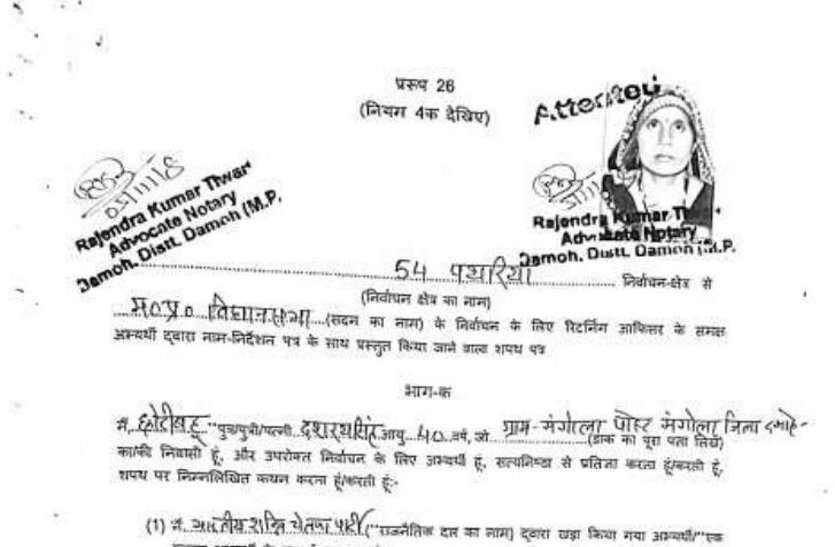 प्ररूप 26
(नियम 4क देखिए)
Attested
05/11/18
Rajendra Kumar Tiwari
Advocate Notary
Damoh. Distt. Damoh (M.P.
Rajendra Kumar Ti
Advocate Notary
Damoh. Distt. Damoh (M.P.
54 पथरिया निर्वाचन-क्षेत्र से
(निर्वाचन क्षेत्र का नाम)
म०प्र० विधानसभा (सदन का नाम) के निर्वाचन के लिए रिटर्निंग आफिसर के समक्ष
अभ्यर्थी द्वारा नाम-निर्देशन पत्र के साथ प्रस्तुत किया जाने वाला शपथ पत्र
भाग-क
मैं, छोटीबहू पुत्र/पुत्री/पत्नी दशरथसिंह आयु 40 वर्ष, जो ग्राम-मंगोला पोस्ट मंगोला जिला दमोह-
(डाक का पूरा पता लिखें)
का/की निवासी हूं, और उपरोक्त निर्वाचन के लिए अभ्यर्थी हूं, सत्यनिष्ठा से प्रतिज्ञा करता हूं/करती हूं,
शपथ पर निम्नलिखित कथन करता हूं/करती हूं:-
(1) मैं भारतीय शक्ति चेतना पार्टी (राजनैतिक दल का नाम) द्वारा खड़ा किया गया अभ्यर्थी/**एक